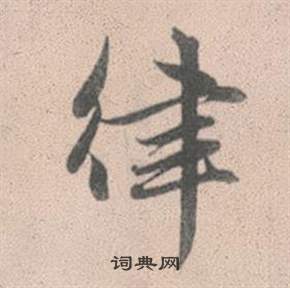 律
词典网